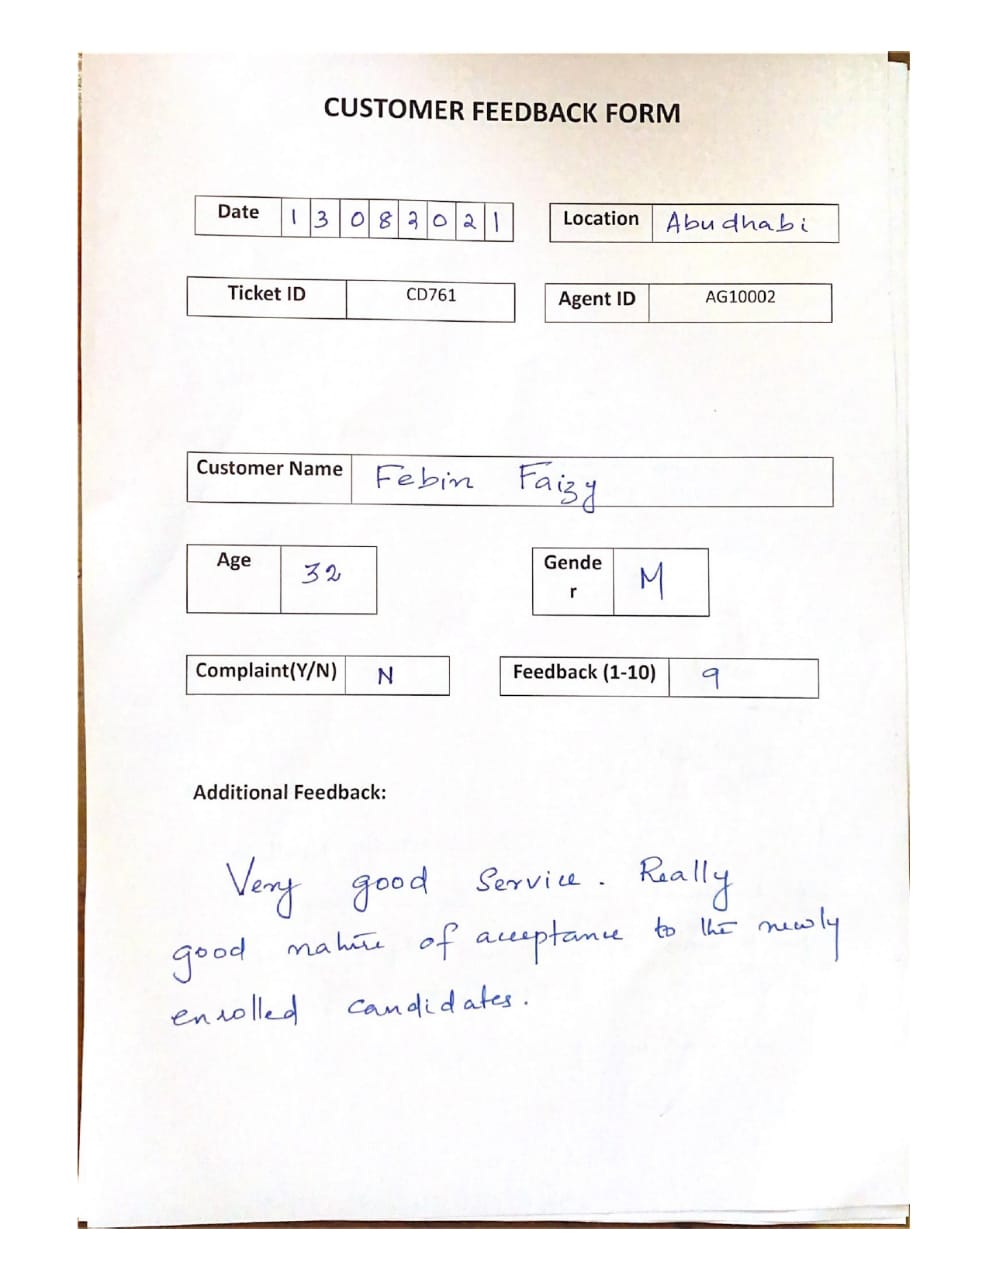 CUSTOMER FEEDBACK FORM
Date 13082021 Location Abudhabi
Ticket ID CD761 Agent ID AG10002
Customer Name Febin Faizy
Age 32 Gende
r M
Complaint(Y/N) N Feedback (1-10) 9
Additional Feedback:
Very good Service. Really
good nature of acceptance to the newly
enrolled candidates.